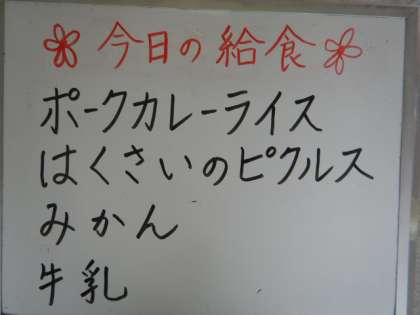 今日の給食
ポークカレーライス
はくさいのピクルス
みかん
牛乳